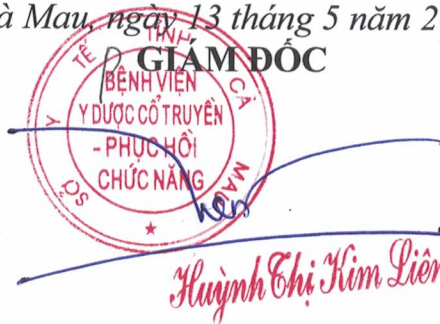 à Mau, ngày 13 tháng 5 năm 2
GIÁM ĐỐC
SỞ Y TẾ TỈNH CÀ MAU
BỆNH VIỆN
Y DƯỢC CỔ TRUYỀN
- PHỤC HỒI
CHỨC NĂNG
Huỳnh Thị Kim Liên